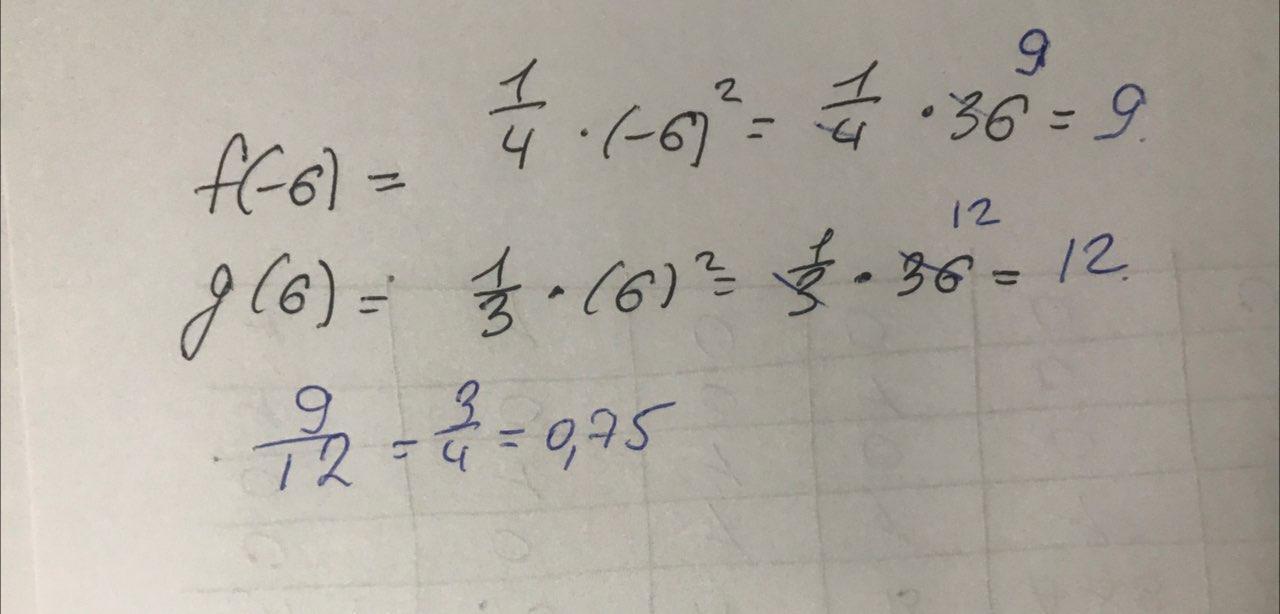 f(-6) = 1/4 · (-6)² = 1/4 · 36 9 = 9.
g(6) = 1/3 · (6)² = 1/3 · 36 12 = 12.
9/12 = 3/4 = 0,75